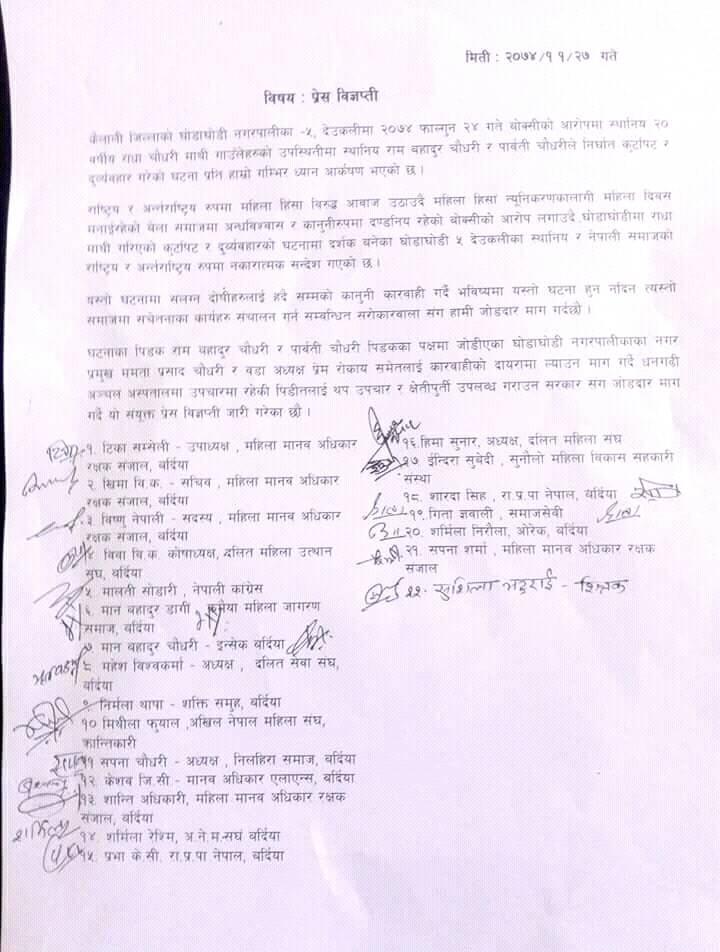 मिती : २०७४/११/२७ गते
विषय : प्रेस विज्ञप्ती
कैलाली जिल्लाको घोडाघोडी नगरपालीका -५, देउकलीमा २०७४ फाल्गुन २४ गते बोक्सीको आरोपमा स्थानिय २०
वर्षीय राधा चौधरी माथी गाउँलेहरुको उपस्थितीमा स्थानिय राम बहादुर चौधरी र पार्वती चौधरीले निर्घात कुटपिट र
दुर्व्यबहार गरेको घटना प्रति हाम्रो गम्भिर ध्यान आर्कषण भएको छ ।
राष्ट्रिय र अर्न्तराष्ट्रिय रुपमा महिला हिसा विरुद्ध आवाज उठाउदै महिला हिसां न्यूनिकरणकालागी महिला दिवस
मनाईरहेको बेला समाजमा अन्धविश्वास र कानुनीरुपमा दण्डनिय रहेको बोक्सीको आरोप लगाउदै घोडाघोडीमा राधा
माथी गरिएको कुटपिट र दुर्व्यबहारको घटनामा दर्शक बनेका घोडाघोडी ५ देउकलीका स्थानिय र नेपाली समाजको
राष्ट्रिय र अर्न्तराष्ट्रिय रुपमा नकारात्मक सन्देश गएको छ ।
यस्तो घटनामा सलग्न दोषीहरुलाई हदै सम्मको कानुनी कारवाही गर्दै भविष्यमा यस्तो घटना हुन नदिन त्यस्तो
समाजमा सचेतनाका कार्यहरु संचालन गर्न सम्बन्धित सरोकारवाला संग हामी जोडदार माग गर्दछौ ।
घटनाका पिडक राम बहादुर चौधरी र पार्वती चौधरी पिडकका पक्षमा जोडीएका घोडाघोडी नगरपालीकाका नगर
प्रमुख ममता प्रसाद चौधरी र वडा अध्यक्ष प्रेम रोकाय समेतलाई कारवाहीको दायरामा ल्याउन माग गर्दै धनगढी
अञ्चल अस्पतालमा उपचारमा रहेकी पिडीतलाई थप उपचार र क्षेतीपुर्ती उपलव्ध गराउन सरकार सग जोडदार माग
गर्दै यो संयुक्त प्रेस विज्ञप्ती जारी गरेका छौ ।
१. टिका सम्सेली - उपाध्यक्ष , महिला मानव अधिकार
रक्षक संजाल, बर्दिया
२. खिमा वि.क. - सचिव , महिला मानव अधिकार
रक्षक संजाल, बर्दिया
३. विष्णु नेपाली - सदस्य , महिला मानव अधिकार
रक्षक संजाल, बर्दिया
४. विवा वि.क. कोषाध्यक्ष, दलित महिला उत्थान
संघ, बर्दिया
५ मालती सोडारी , नेपाली कांग्रेस
६. मान बहादुर डागी महिला जागरण
समाज, बर्दिया
७ मान बहादुर चौधरी - इन्सेक बर्दिया
८ महेश विश्वकर्मा - अध्यक्ष , दलित सेवा संघ,
बर्दिया
९ निर्मला थापा - शक्ति समुह, बर्दिया
१० मिथीला फुयाल ,अखिल नेपाल महिला संघ,
क्रान्तिकारी
११ सपना चौधरी - अध्यक्ष , निलहिरा समाज, बर्दिया
१२. केशव जि.सी. - मानव अधिकार एलाएन्स, बर्दिया
१३. शान्ति अधिकारी, महिला मानव अधिकार रक्षक
संजाल, बर्दिया
१४. शर्मिला रेश्मि, अ.ने.म.संघ बर्दिया
१५. प्रभा के.सी. रा.प्र.पा नेपाल, बर्दिया
१६.हिमा सुनार, अध्यक्ष, दलित महिला संघ
१७ ईन्दिरा सुबेदी , सुनौलो महिला विकास सहकारी
संस्था
१८. शारदा सिह , रा.प्र.पा नेपाल, बर्दिया
१९. गिता ज्ञवाली , समाजसेवी
२०. शर्मिला निरौला, ओरेक, बर्दिया
२१. सपना शर्मा , महिला मानव अधिकार रक्षक
संजाल
२२. सुशिला भट्टराई - शिक्षक